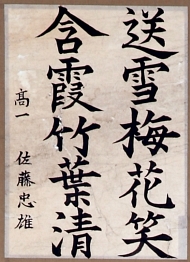 送雪梅花笑
含霞竹葉清
高一 佐藤忠雄